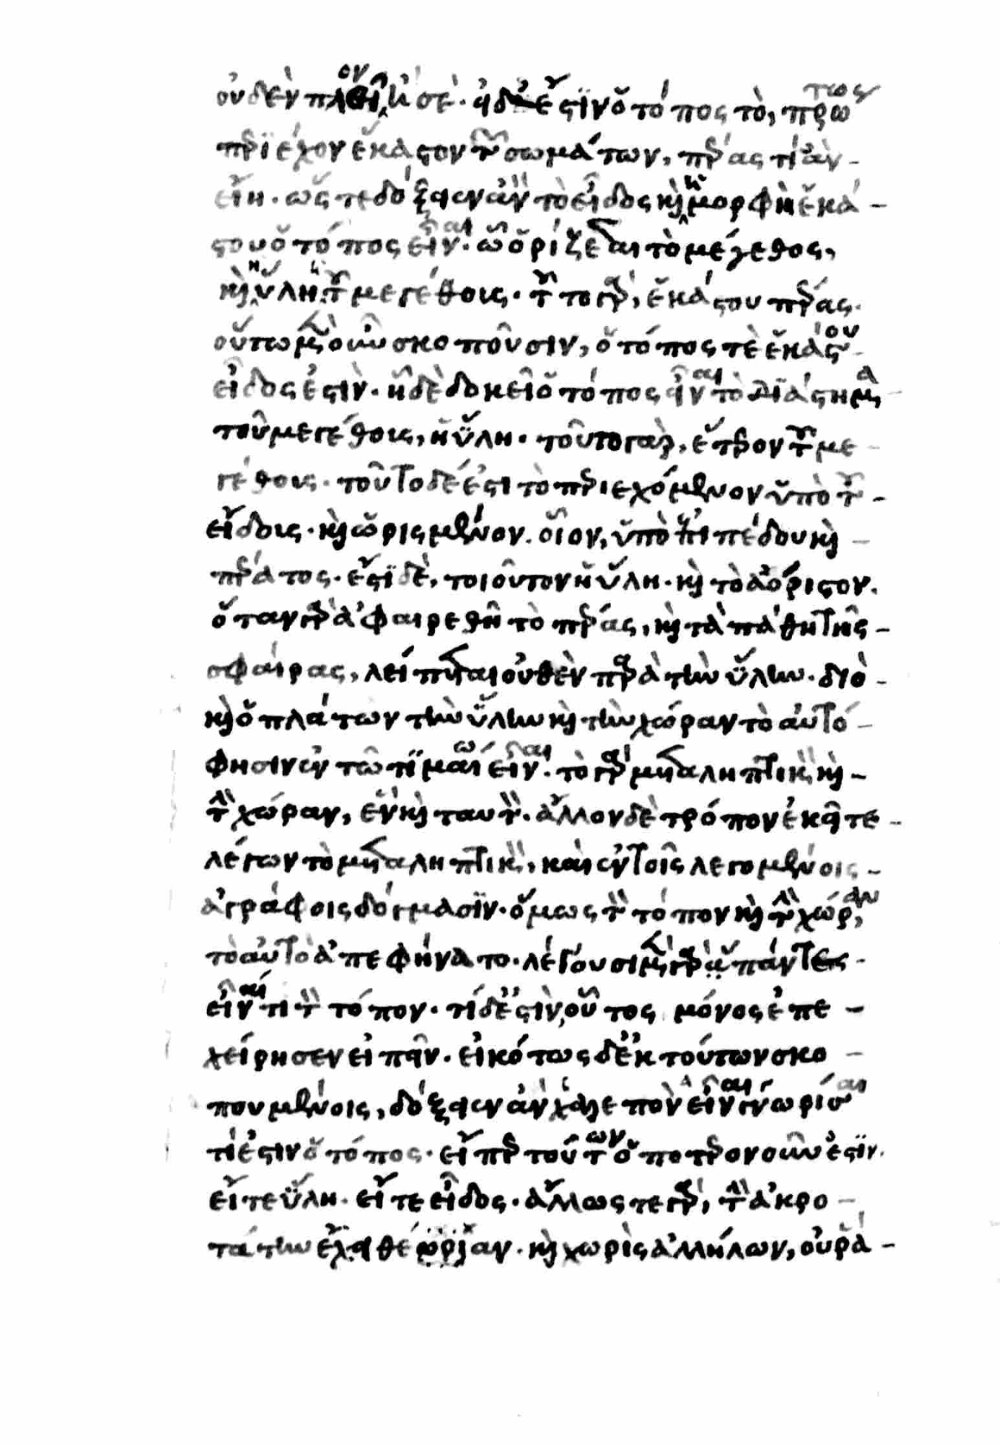 οὐδὲν πλεῖον ἢ σέ· εἰ δέ ἐστιν ὁ τόπος τὸ, πρώτως
περιέχον ἕκαστον τῶν σωμάτων, πέρας τί ἂν
εἴη· ὥστε δόξειεν ἂν τὸ εἶδος καὶ ἡ μορφὴ ἑκά-
στου ὁ τόπος εἶναι· ᾧ ὁρίζεται τὸ μέγεθος,
καὶ ἡ ὕλη ἡ τοῦ μεγέθους· τοῦτο γάρ, ἑκάστου πέρας.
οὕτω μὲν οὖν σκοποῦσιν, ὁ τόπος τὸ ἑκάστου
εἶδός ἐστιν· ᾗ δὲ δοκεῖ ὁ τόπος εἶναι τὸ διάστημα
τοῦ μεγέθους, ἡ ὕλη· τοῦτο γὰρ, ἕτερον τοῦ με-
γέθους· τοῦτο δέ ἐστι τὸ περιεχόμενον ὑπὸ τοῦ
εἴδους· καὶ ὡρισμένον. οἷον, ὑπὸ ἐπιπέδου καὶ
πέρατος· ἔστι δὲ, τοιοῦτον ἡ ὕλη· καὶ τὸ ἀόριστον.
ὅταν γὰρ ἀφαιρεθῇ τὸ πέρας, καὶ τὰ πάθη τῆς
σφαίρας, λείπεται οὐθὲν παρὰ τὴν ὕλην· διὸ
καὶ ὁ πλάτων τὴν ὕλην καὶ τὴν χώραν τὸ αὐτό
φησιν ἐν τῷ τιμαίῳ εἶναι· τὸ γὰρ μεταληπτικὸν καὶ
τὴν χώραν, ἓν καὶ ταυτόν· ἄλλον δὲ τρόπον ἐκεῖ τε
λέγων τὸ μεταληπτικὸν, καὶ ἐν τοῖς λεγομένοις
ἀγράφοις δόγμασιν· ὅμως τὸν τόπον καὶ τὴν χώραν,
τὸ αὐτὸ ἀπεφήνατο· λέγουσι μὲν γὰρ πάντες
εἶναί τι τὸν τόπον· τί δέ ἐστιν, οὗτος μόνος ἐπε-
χείρησεν εἰπεῖν· εἰκότως δ' ἐκ τούτων σκο
πουμένοις, δόξειεν ἂν εἶναι χαλεπὸν γνωρίσαι
τί ἐστιν ὁ τόπος· εἴπερ τούτων ὁποτερονοῦν ἐστίν.
εἴτε ὕλη· εἴτε εἶδος· ἄλλως τε γάρ, τὴν ἀκρο
τάτην ἔχει θεωρίαν· καὶ χωρὶς ἀλλήλων, οὐ ῥᾴ-